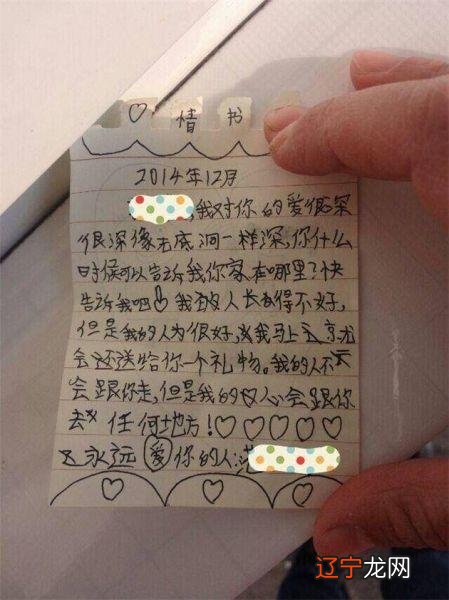 ♡ 情书
2014年12月
,我对你的爱很深
很深像无底洞一样深,你什么
时候可以告诉我你家在哪里?快
告诉我吧! 我人长得不好,
但是我的人为很好,我马上
会送给你一个礼物。我的人不
会跟你走,但是我的心会跟你
去 任何地方!♡♡♡♡♡
永远爱你的人:
♡ ♡ ♡
辽宁龙网